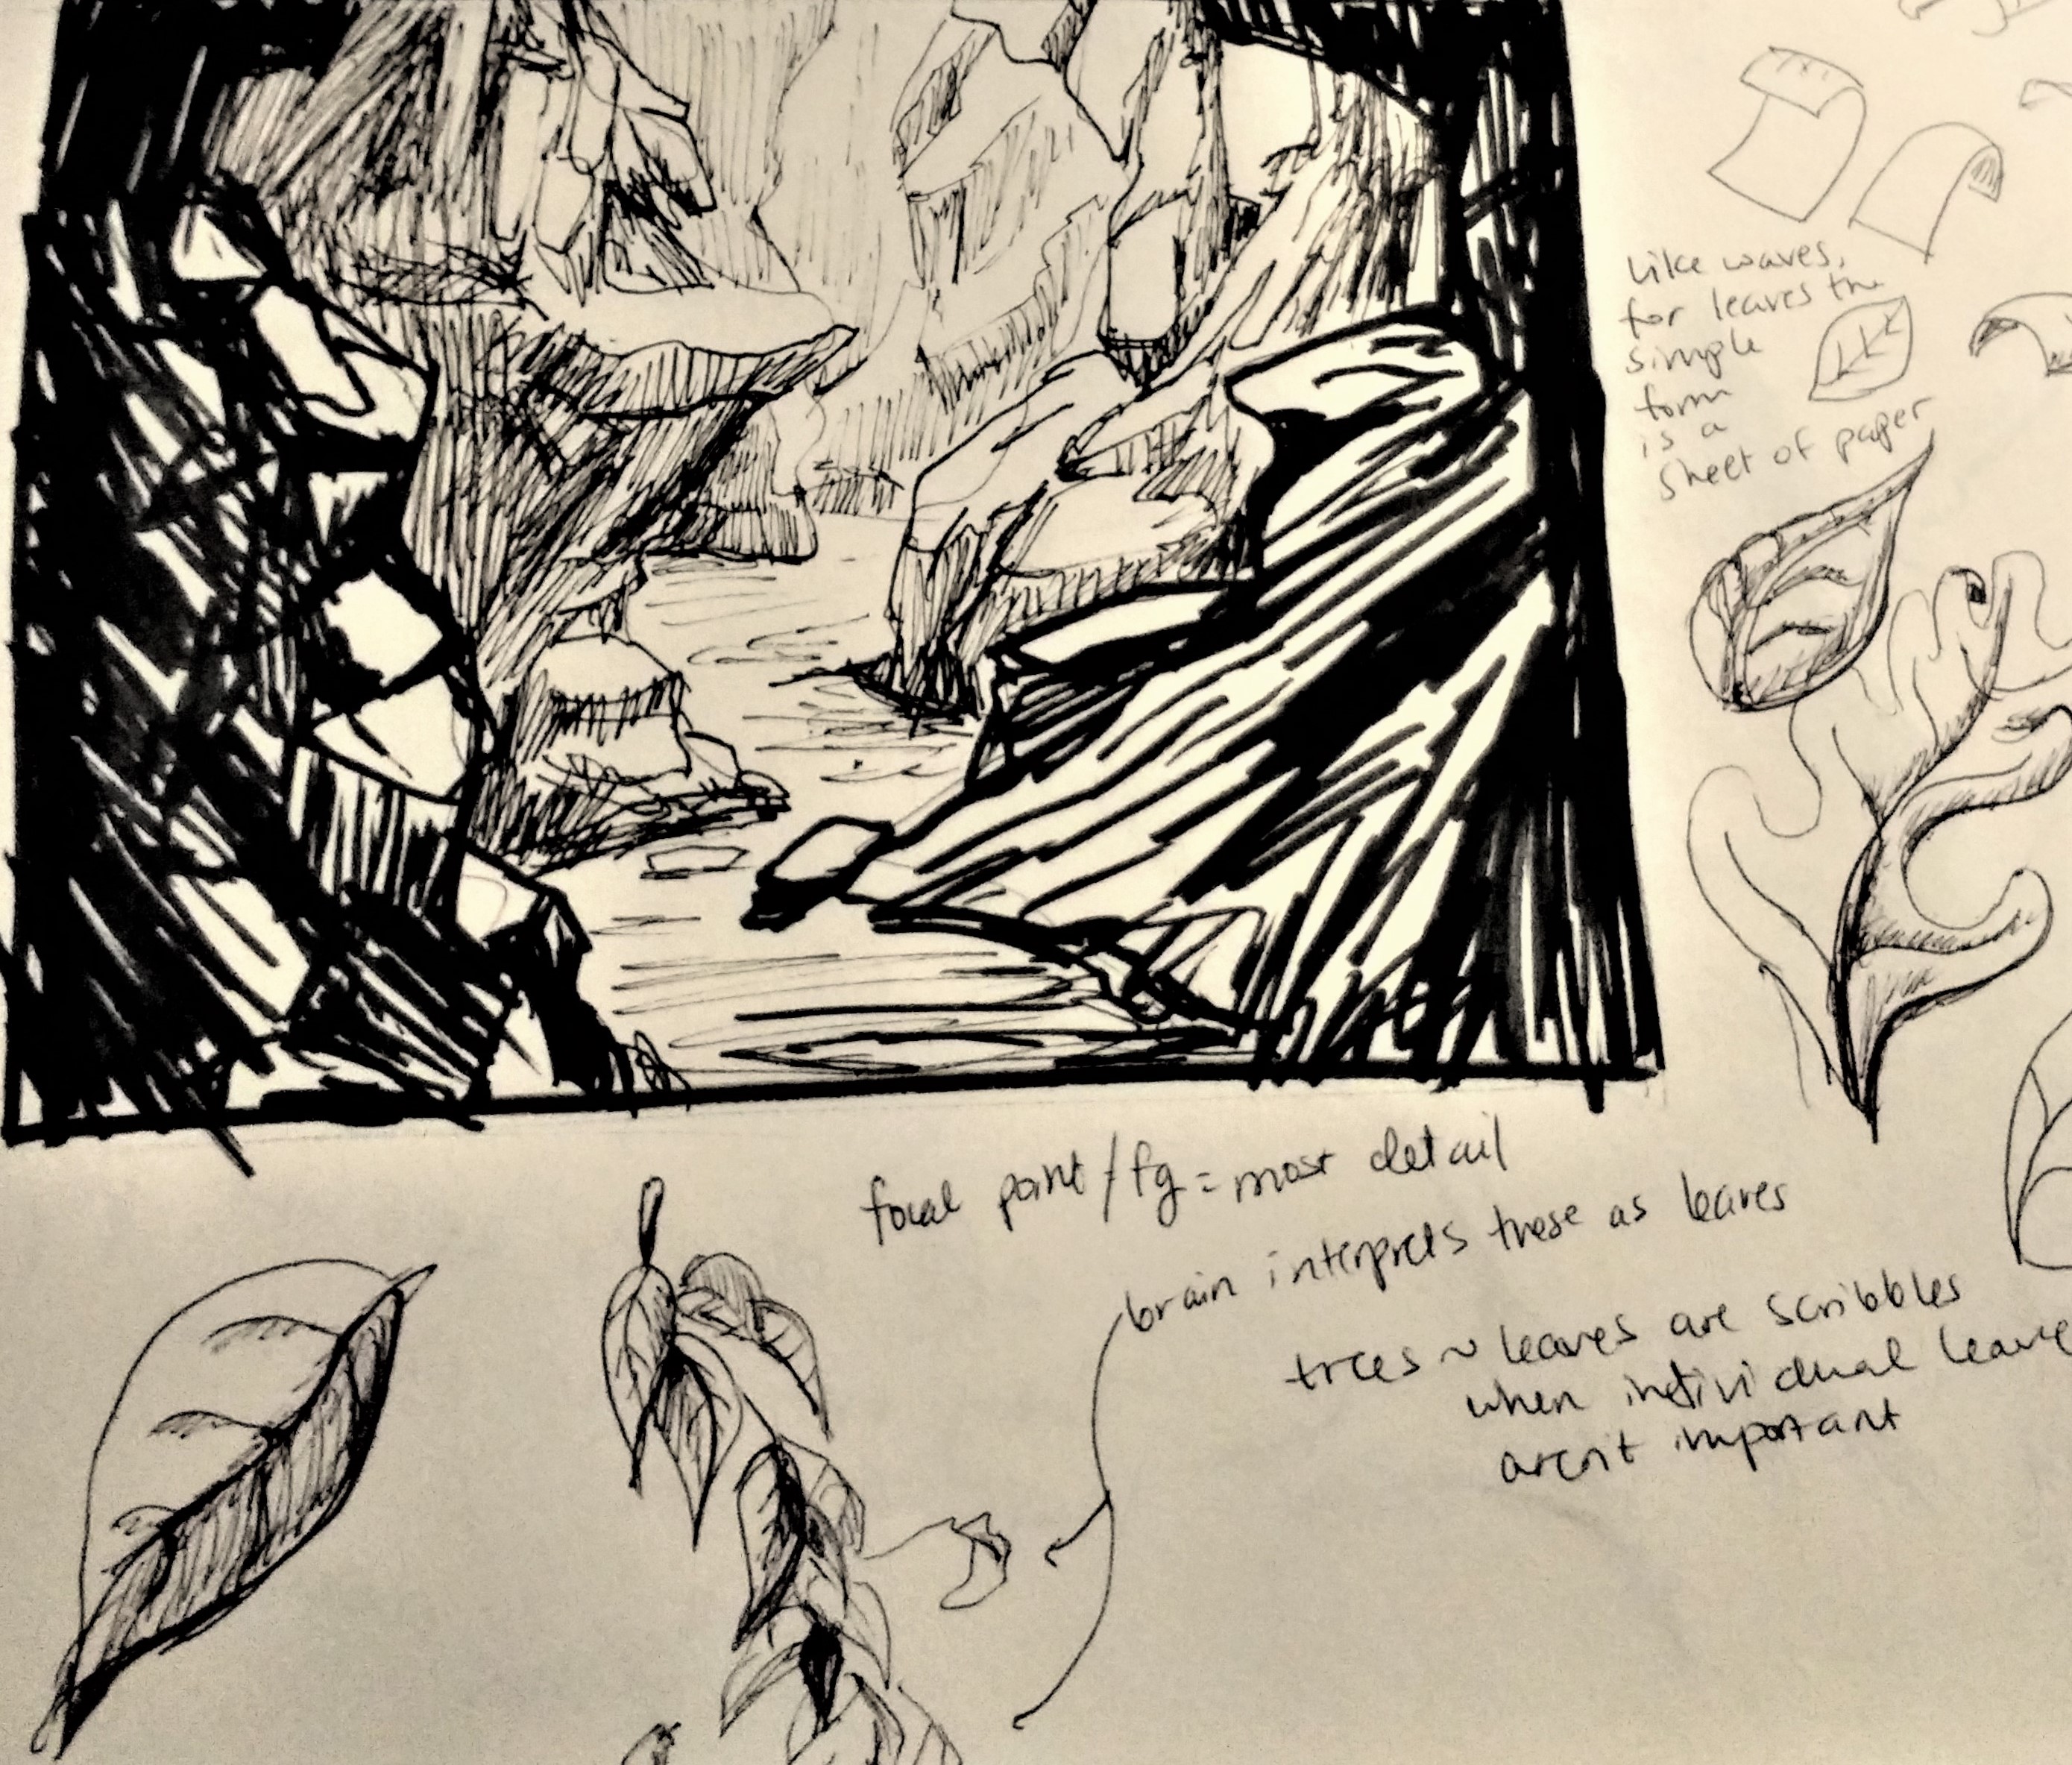 like waves,
for leaves the
simple
form
is a
sheet of paper
focal point/fg = most detail
brain interprets these as leaves
trees ~ leaves are scribbles
when individual leave
aren't important